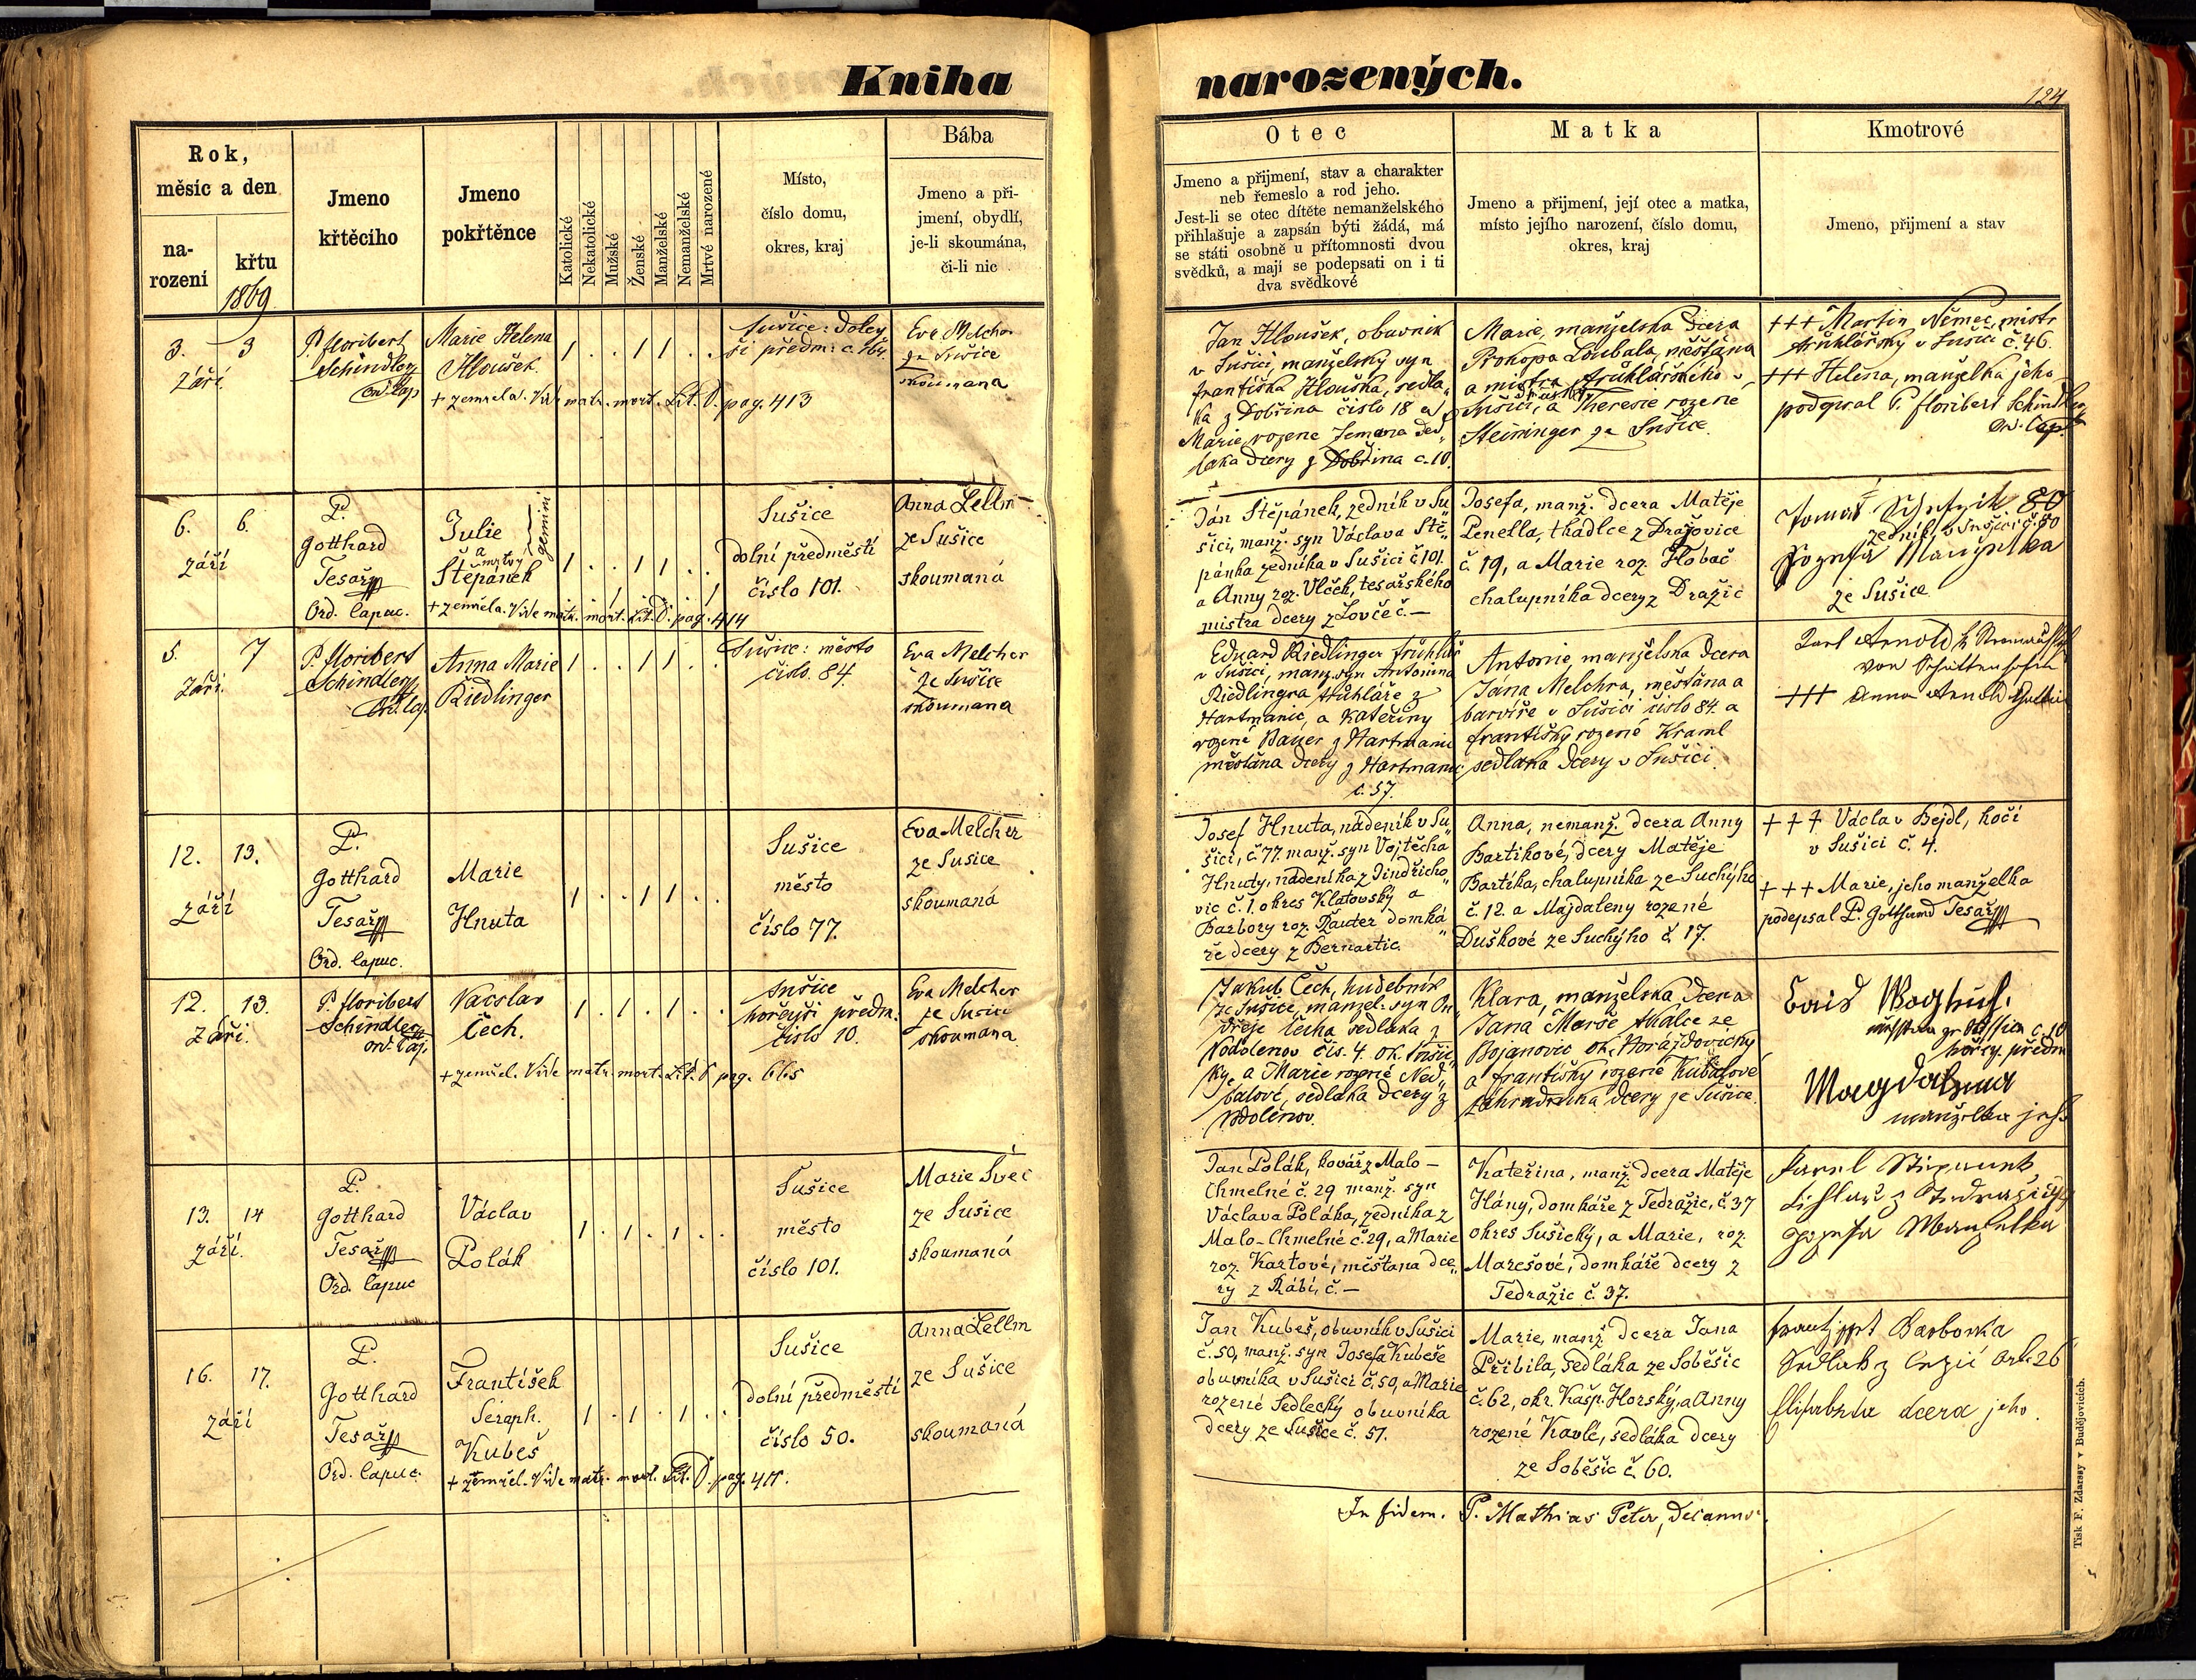 Kniha narozených.
124
Rok,
měsíc a den
na-
rození
křtu
1869
Jmeno
křtěcího
Jmeno
pokřtěnce
Katolické
Nekatolické
Mužské
Ženské
Manželské
Nemanželské
Mrtvé narozené
Místo,
číslo domu,
okres, kraj
Bába
Jmeno a při-
jmení, obydlí,
je-li skoumána,
či-li nic
Otec
Jmeno a přijmení, stav a charakter
neb řemeslo a rod jeho.
Jest-li se otec dítěte nemanželského
přihlašuje a zapsán býti žádá, má
se státi osobně u přítomnosti dvou
svědků, a mají se podepsati on i ti
dva svědkové
Matka
Jmeno a přijmení, její otec a matka,
místo jejího narození, číslo domu,
okres, kraj
Kmotrové
Jmeno, přijmení a stav
3. 3
září
P. floribert
Schindler
Ord. Cap.
Marie Helena
Kloušek.
+ zemřela. Vide matr. mort. Lit. D. pag. 413
1 . . 1 1 . .
Sušice: doley
ší předm: č.
Eva Melcher
ze Sušice
skoumana
Jan Kloušek, obuvnik
v Sušici, manželský syn
františka Klouška, sedla„
ka z Dobřína číslo 18 a
Marie, rozené Zemana sed„
laka dcery z Dobřina č. 10.
Marie, manželska dcera
Prokopa Loubala, měštána
a mistra truhlářského v
Sušici, a Theresie rozené
Steininger ze Sušice.
+++ Martin Němec, mistr
truhlářský v Sušici č. 46.
+++ Helena, manželka jeho
podepsal P. floribert Schindler
Ord. Cap.
6. 6.
září
P.
Gotthard
Tesař
Ord. Capuc.
Julie
a
mrtvý
Štěpánek
gemini
+ zemřela. Vide matr. mort. Lit. D. pag. 414
1 . . 1 1 . .
Sušice
dolní předměstí
číslo 101.
Anna Lellm
ze Sušice
skoumaná
Ján Štěpánek, zedník v Su„
šici, manž. syn Václava Ště„
pánka zedníka v Sušici č. 101.
a Anny roz. Vlček, tesařského
mistra dcery z Lovče č. —
Josefa, manž. dcera Matěje
Penella, tkadlce z Dražovice
č. 19, a Marie roz. Hobač
chalupníka dcery z Dražic
zedník, v Sušici č. 80
ze Sušice
5. 7
Září
P. floribert
Schindler
Ord. Cap.
Anna Marie
Riedlinger
1 . . 1 1 . .
Sušice: město
číslo. 84.
Eva Melcher
ze Sušice
skoumana
Eduard Riedlinger truhlář
v Sušici, manž. syn Antonína
Riedlingra truhláře z
Hartmanic, a Kateřiny
rozené Bauer z Hartmanic
měštána dcery z Hartmanic
č. 57.
Antonie, manželska dcera
Jána Melchra, měštána a
barvíře v Sušici číslo 84. a
františky rozené Kraml
sedlaka dcery v Sušici.
Karl Arnold
von Schüttenhofen
+++ Anna Arnold
12. 13.
září
P.
Gotthard
Tesař
Ord. Capuc.
Marie
Hnuta
1 . . 1 1 . .
Sušice
město
číslo 77.
Eva Melcher
ze Sušice
skoumaná
Josef Hnuta, nádeník v Su„
šici, č. 77. manž. syn Vojtěcha
Hnuty, nádeníka z Jindřicho„
vic č. 1. okres Klatovský a
Barbory roz. Pauter domká„
ře dcery z Bernartic.
Anna, nemanž. dcera Anny
Bartikové, dcery Matěje
Bartíka, chalupníka ze Suchýho
č. 12. a Majdaleny rozené
Duškové ze Suchýho č. 17.
+ + + Václav Bejdl, kočí
v Sušici č. 4.
+ + + Marie, jeho manželka
podepsal P. Gotthard Tesař
12. 13.
Září.
P. floribert
Schindler
Ord. Cap.
Vacslav
Čech.
+ zemřel. Vide matr. mort. Lit. D pag. 665
1 . 1 . 1 . .
Sušice
hořejší předm.
číslo 10.
Eva Melcher
ze Sušice
skoumana
Jakub Čech, hudebník
ze Sušice, manžel. syn On„
dřeje Čecha sedlaka z
Vodolenov čís. 4. ok. Sušic„
ky, a Marie rozené Ned„
balové, sedlaka dcery z
Vodolenov.
Klara, manželska dcera
Jana Maroč tkalce ze
Bojanovic ok. Horaždovický
a františky rozené Kubalové
zahradníka dcery ze Sušice.
č. 10
hořej. předm
Magdalena
manželka jeho
13. 14
září.
P.
Gotthard
Tesař
Ord. Capuc
Václav
Polák
1 . 1 . 1 . .
Sušice
město
číslo 101.
Marie Švec
ze Sušice
skoumaná
Jan Polák, kovář z Malo-
Chmelné č. 29 manž. syn
Václava Poláka, zedníka z
Malo-Chmelné č. 29, a Marie
roz. Kartové, měštána dce„
ry z Rábí, č. —
Kateřina, manž. dcera Matěje
Hány, domkáře z Tedražic, č. 37
okres Sušický, a Marie, roz.
Marešové, domkáře dcery z
Tedražic č. 37.
Manželka
16. 17.
září
P.
Gotthard
Tesař
Ord. Capuc.
František
Seraph.
Kubeš
+ zemřel. Vide matr. mort. Lit. D. pag. 411.
1 . 1 . 1 . .
Sušice
dolní předměstí
číslo 50.
Anna Lellm
ze Sušice
skoumaná
Jan Kubeš, obuvník v Sušici
č. 50, manž. syn Josefa Kubeše
obuvníka v Sušici č. 50, a Marie
rozené Sedlecky obuvníka
dcery ze Sušice č. 51.
Marie, manž. dcera Jana
Přibila, sedláka ze Soběšic
č. 62, okr. Kašp. Horský, a Anny
rozené Kavlé, sedláka dcery
ze Soběšic č. 60.
dcera jeho.
In fidem. P. Mathias Peter, Decanus.
Tisk F. Zdarssy v Budějovicích.